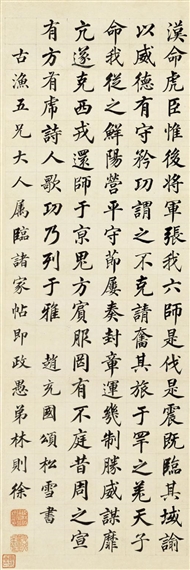 漢命虎臣惟後將軍張我六師是伐是震既臨其域諭
以威德有守矜功謂之不克請奮其旅于罕之羌天子
命我從之鮮陽營平守節屢奏封章運幾制勝威謀靡
亢遂克西戎還師于京鬼方賓服罔有不庭昔周之宣
有方有虎詩人歌功乃列于雅 趙充國頌松雪書
古漁五兄大人属臨諸家帖即政愚弟林則徐